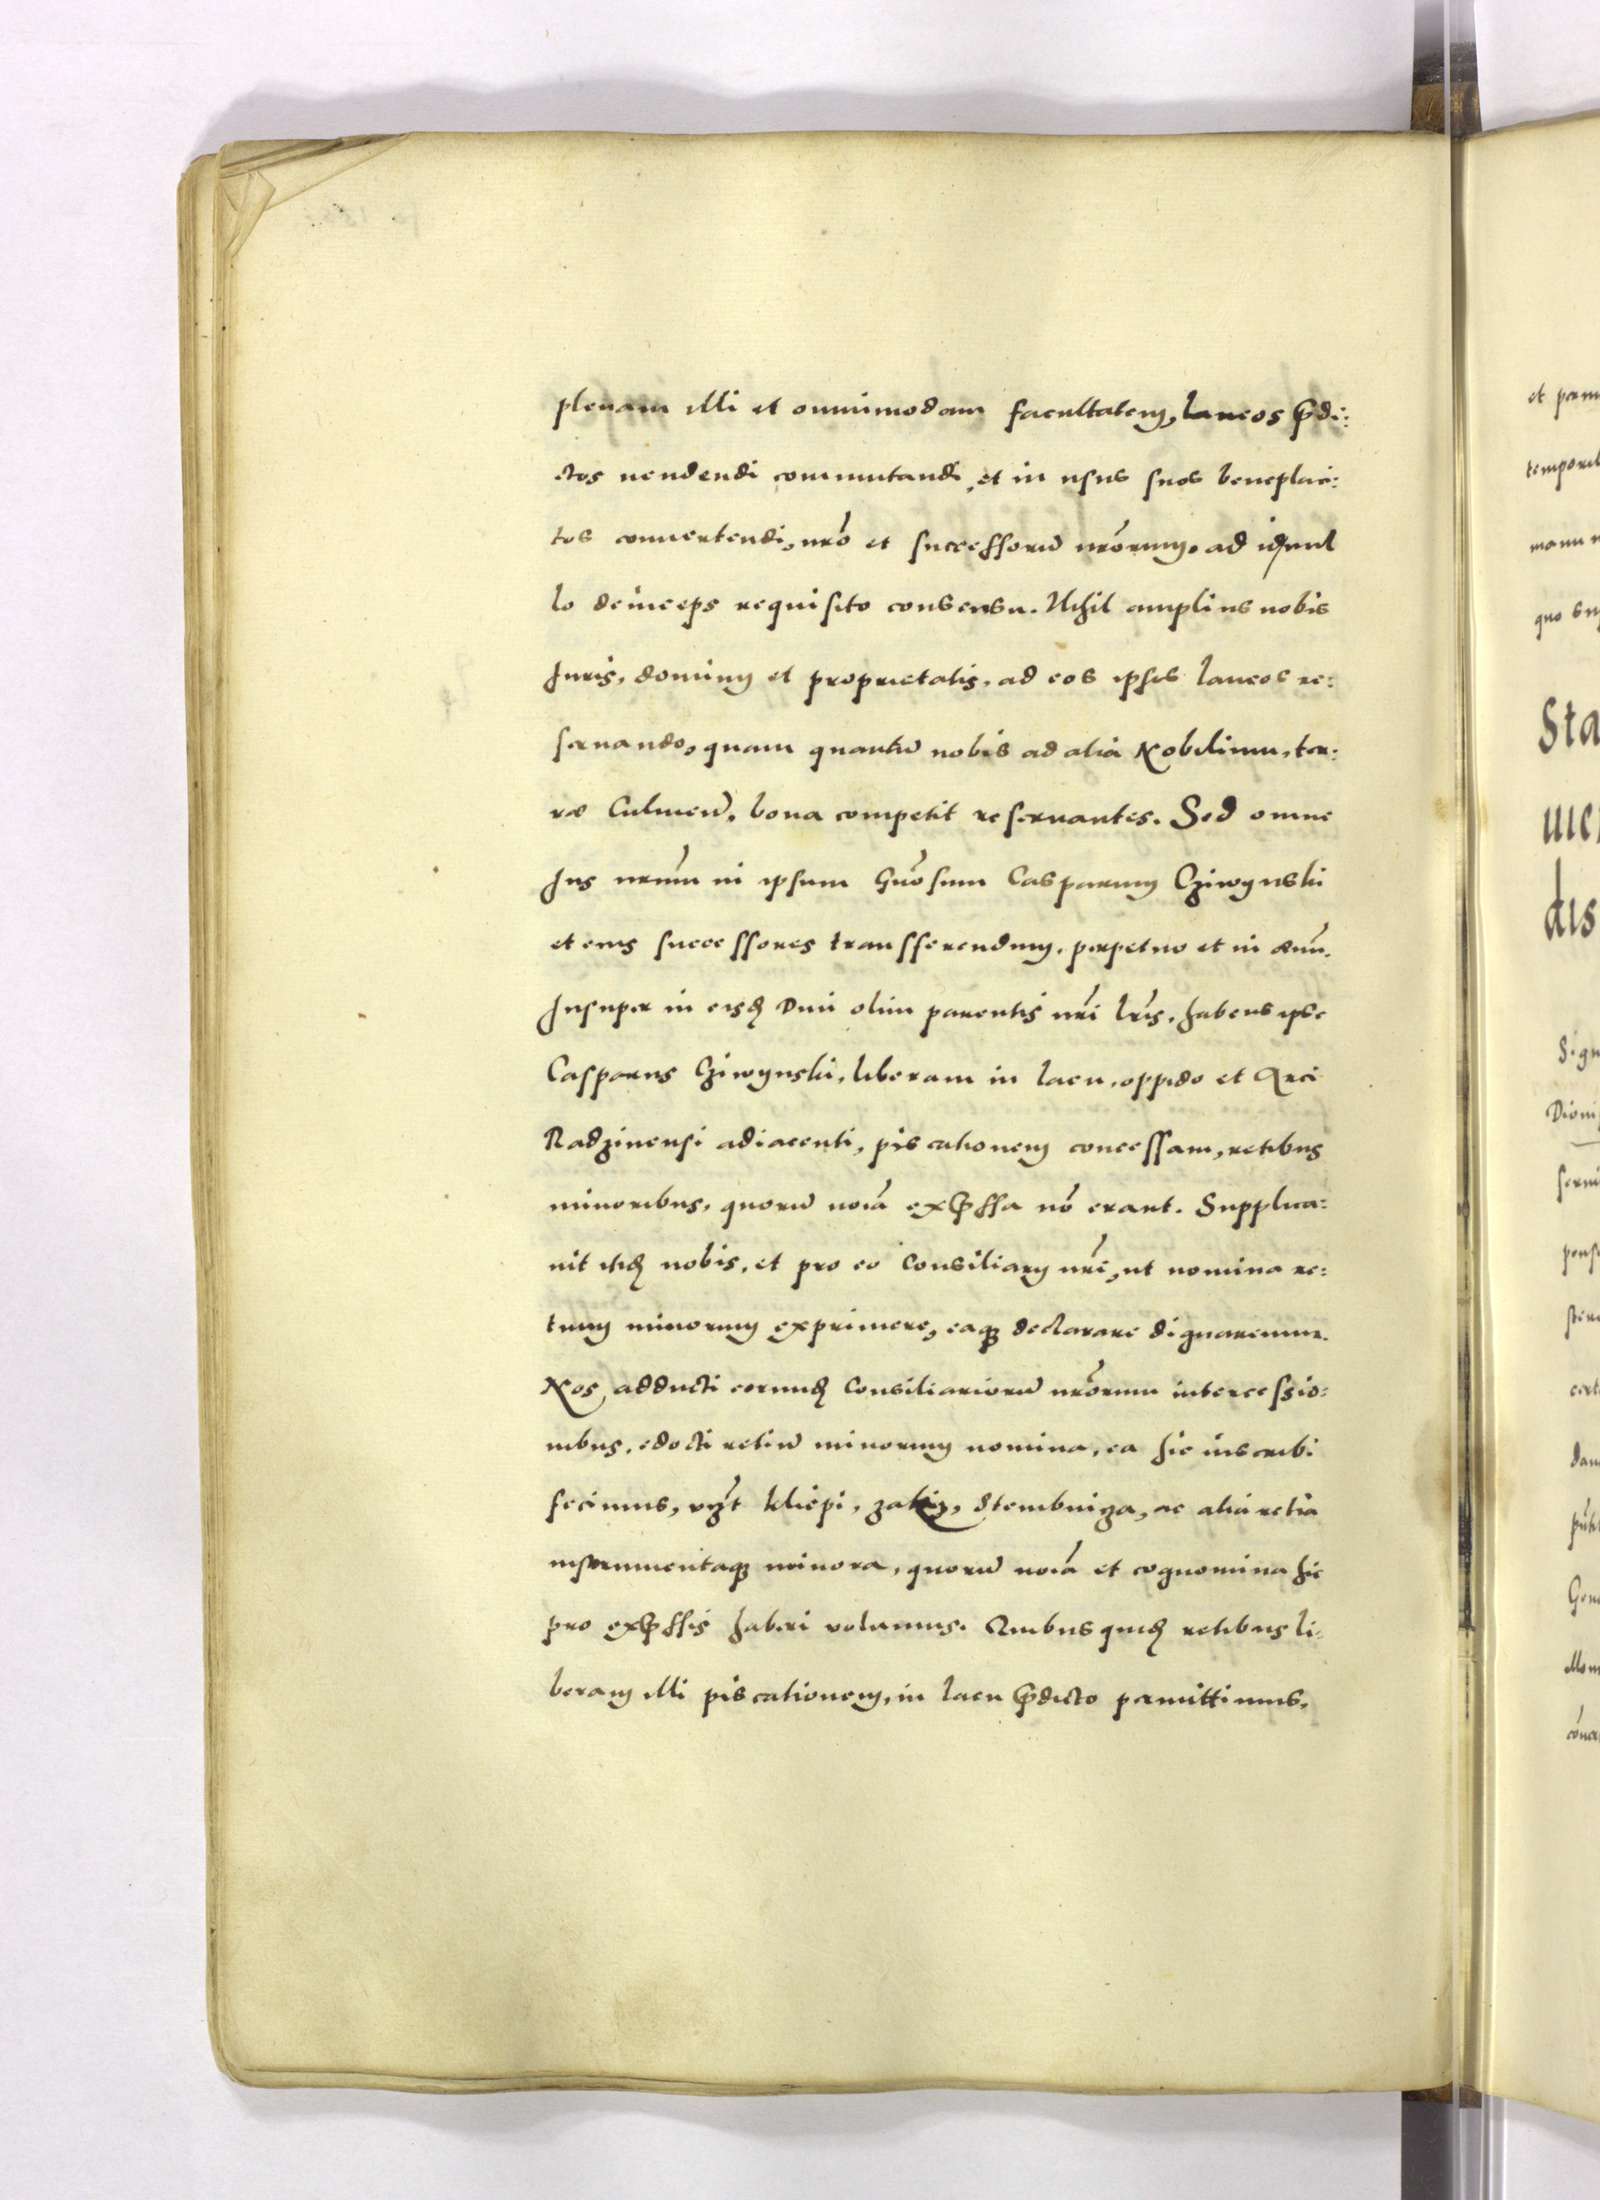 plenam illi et omnimodam facultatem, laneos p̄di:
ctos uendendi commutandi, et in usus suos beneplaci:
tos conuertendi, nr̃o et successorũ nr̃orum, ad id nul
lo deinceps requisito consensu. Nihil amplius nobis
Iuris, dominij et proprietatis, ad eos ipsos laneos re:
seruando, quam quantũ nobis ad alia Nobilium, ter:
ræ Culmeñ, bona competit reseruantes. Sed omne
Ius nrũm in ipsum Gnõsum Casparum Cziwynski
et eius successores transfferendum, perpetuo et in æuũ.
Insuper in eisđ Diui olim parentis nr̃i lr̃is, habens ipse
Casparus Cziwynski, liberam in lacu, oppido et Arci
Radzinensi adiacenti, piscationem concessam, retibus
minoribus, quorũ noĩa exp̄ssa nõ erant. Supplica:
uit itiđ nobis, et pro eo Consiliarij nr̃i, ut nomina re:
tium minorum exprimere, eaqꝫ declarare dignaremur.
Nos adducti eorunđ Consiliariorũ nr̃orum intercessio:
nibus, edocti retiũ minorum nomina, ea hic inscribi
fecimus, vꝫt kliepi, zakij, Stembniza, ac alia retia
instrumentaqꝫ minora, quorũ noĩa et cognomina hic
pro exp̄ssis haberi volumus. Quibus quiđ retibus li:
beram illi piscationem, in lacu p̄dicto permittimus,
et perm
temporib
manu n
quo su
Sta
dis
Sign
Dioni
Gene